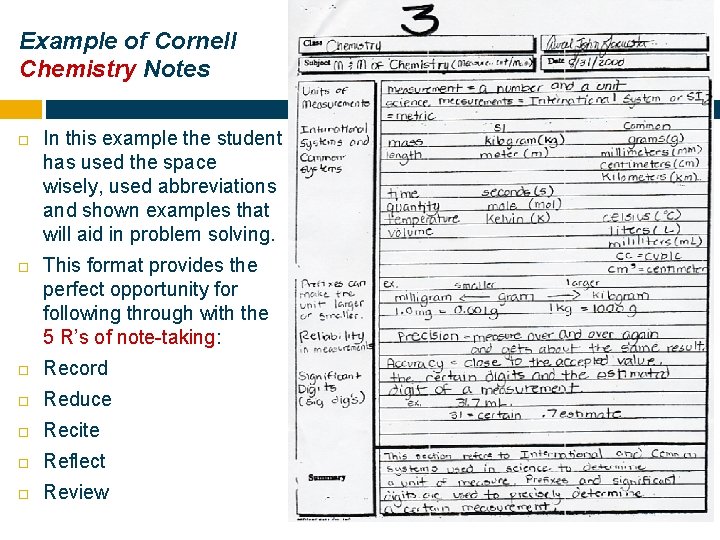 Example of Cornell
Chemistry Notes
In this example the student
has used the space
wisely, used abbreviations
and shown examples that
will aid in problem solving.
This format provides the
perfect opportunity for
following through with the
5 R’s of note-taking:
Record
Reduce
Recite
Reflect
Review
3
Class Chemistry
Subject M & M of Chemistry (Measurement/
Date 8/31/2000
Units of
Measurements
International
Systems and
Common
systems
Prefixes can
make the
unit larger
or smaller.
Reliability
in measurements
Significant
Digits
(sig dig's)
measurement = a number and a unit
science measurements = International System or SI
= metric
SI Common
mass kilogram (kg) grams (g)
length meter (m) millimeters (mm)
centimeters (cm)
Kilometers (km)
time seconds (s)
quantity mole (mol)
temperature Kelvin (K) celsius (°C)
volume liters (L)
milliliters (mL)
cc = cubic
cm³ = centimeter
ex. smaller larger
milligram ← gram → kilogram
1.0 mg = 0.001g 1 kg = 1000 g
Precision - measure over and over again
and gets about the same result.
Accuracy = close to the accepted value,
the certain digits and the estimated
digit of a measurement
ex. 31.7 mL
31 = certain .7 estimate
Summary
This section refers to International and Common
systems used in science to determine
a unit of measure. Prefixes and significant
digits are used to precisely determine
a certain measurement.